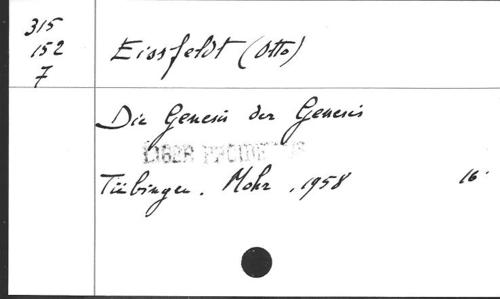 315
152
7
Eissfeldt (Otto)
Die Genesis der Genesis
LIBER
Tübingen. Mohr, 1958
16°